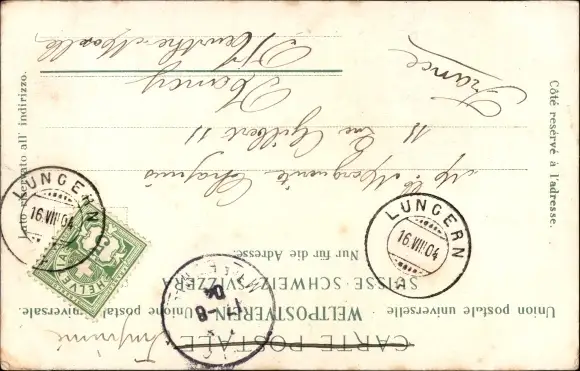 CARTE POSTALE
Union postale universelle. WELTPOSTVEREIN. Unione postale universale.
SUISSE·SCHWEIZ·SVIZZERA
Nur für die Adresse.
Côté resérvé à l'adresse.
Lato riservato all' indirizzo.
Imprimé
HELVETIA
LUNGERN
16.VIII.04
LUNGERN
16.VIII.04
17-8
04
Mlle Marguerite Chapuis
11 Rue Gilbert 11
Nancy
Meurthe-Moselle
France